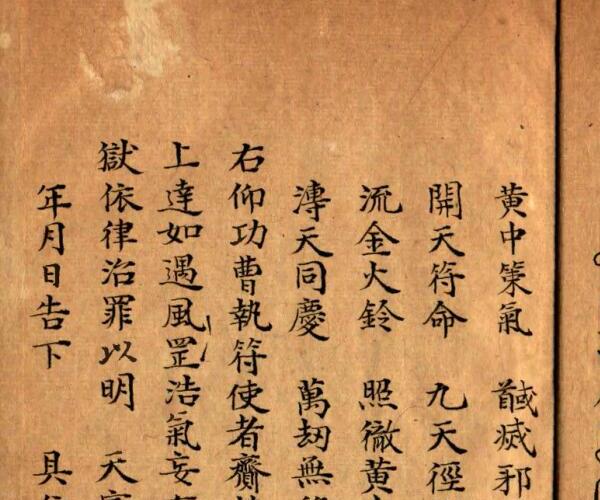 黄中策氣　馘滅邪
開天符命　九天徑
流金火鈴　照徹黄
溥天同慶　萬劫無
右仰功曹執符使者齎
上達如遇風罡浩氣妄
獄依律治罪以明　天
年月日告下　具